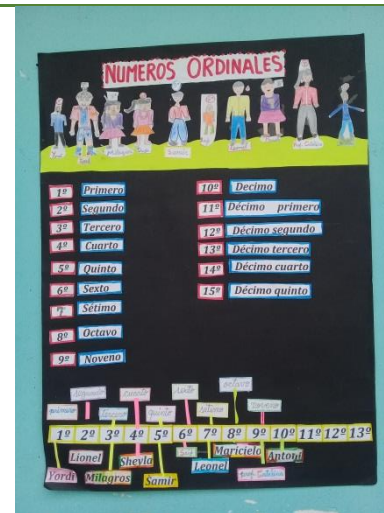 NUMEROS ORDINALES
1º Primero
2º Segundo
3º Tercero
4º Cuarto
5º Quinto
6º Sexto
7º Sétimo
8º Octavo
9º Noveno
10º Decimo
11º Décimo primero
12º Décimo segundo
13º Décimo tercero
14º Décimo cuarto
15º Décimo quinto
1º 2º 3º 4º 5º 6º 7º 8º 9º 10º 11º 12º 13º
Lionel Shevla Maricielo Antoni
Yordi Milagros Samir Leonel